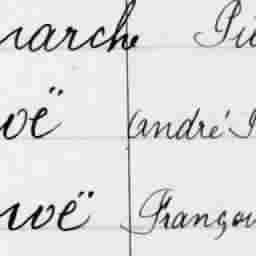 marche Pie
oë (andré P
noë Françoi